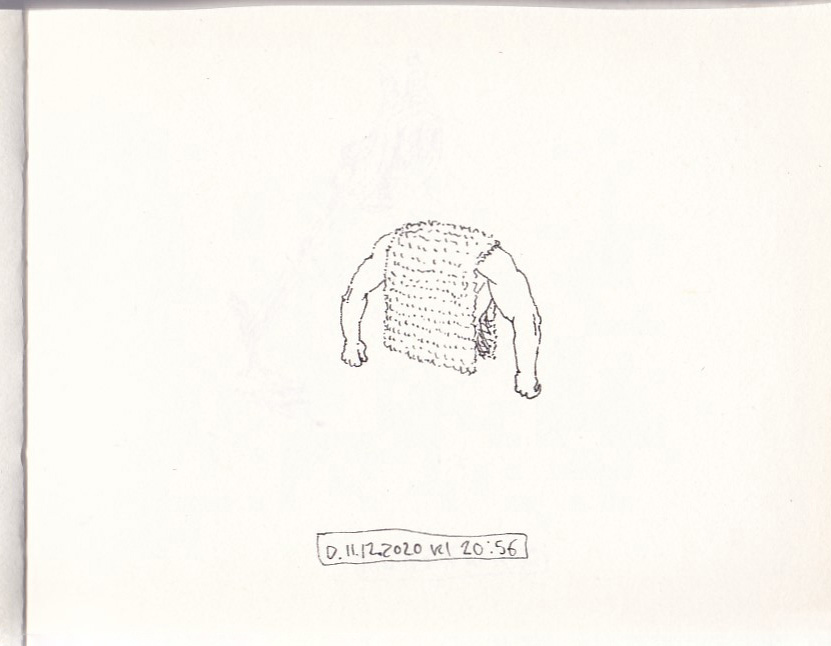 D.11.12.2020 kl 20:56